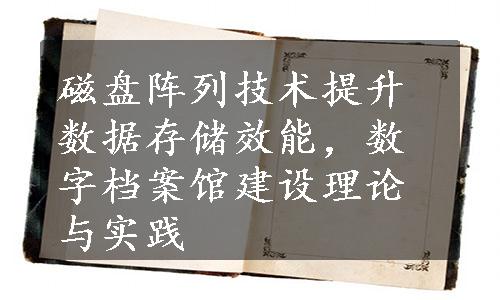 磁盘阵列技术提升
数据存储效能，数
字档案馆建设理论
与实践